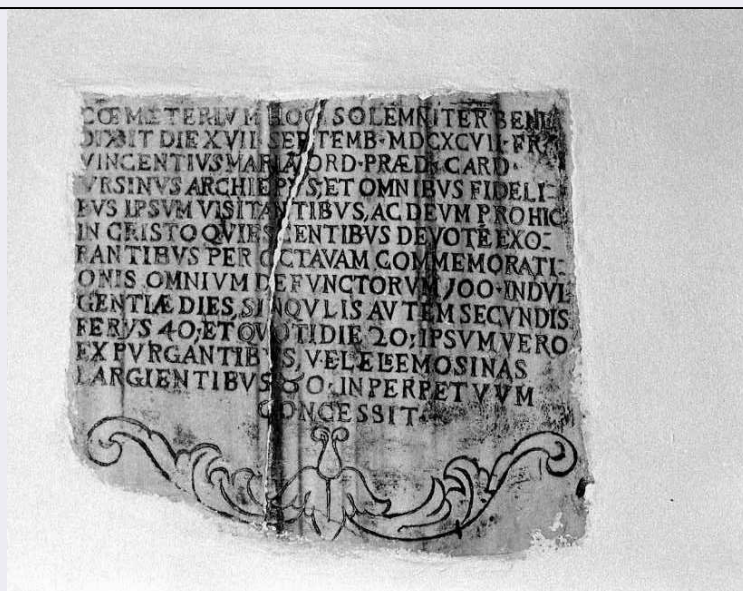 CŒMETERIVM HOC SOLEMNITER BENE
DIXIT DIE XVII SEPTEMB · MDCXCVII · FR ·
VINCENTIVS MARIA ORD · PRÆD · CARD ·
VRSINVS ARCHIEPVS, ET OMNIBVS FIDELI-
BVS IPSVM VISITANTIBVS, AC DEVM PRO HIC
IN CRISTO QVIESCENTIBVS DEVOTÉ EXO-
RANTIBVS PER OCTAVAM COMMEMORATI-
ONIS OMNIVM DEFVNCTORVM 100 · INDVL
GENTIÆ DIES, SINGVLIS AVTEM SECVNDIS
FERIIS 40; ET QVOTIDIE 20; IPSVM VERO
EXPVRGANTIBVS, VEL ELEEMOSINAS
LARGIENTIBVS 80 · IN PERPETVVM
CONCESSIT ·